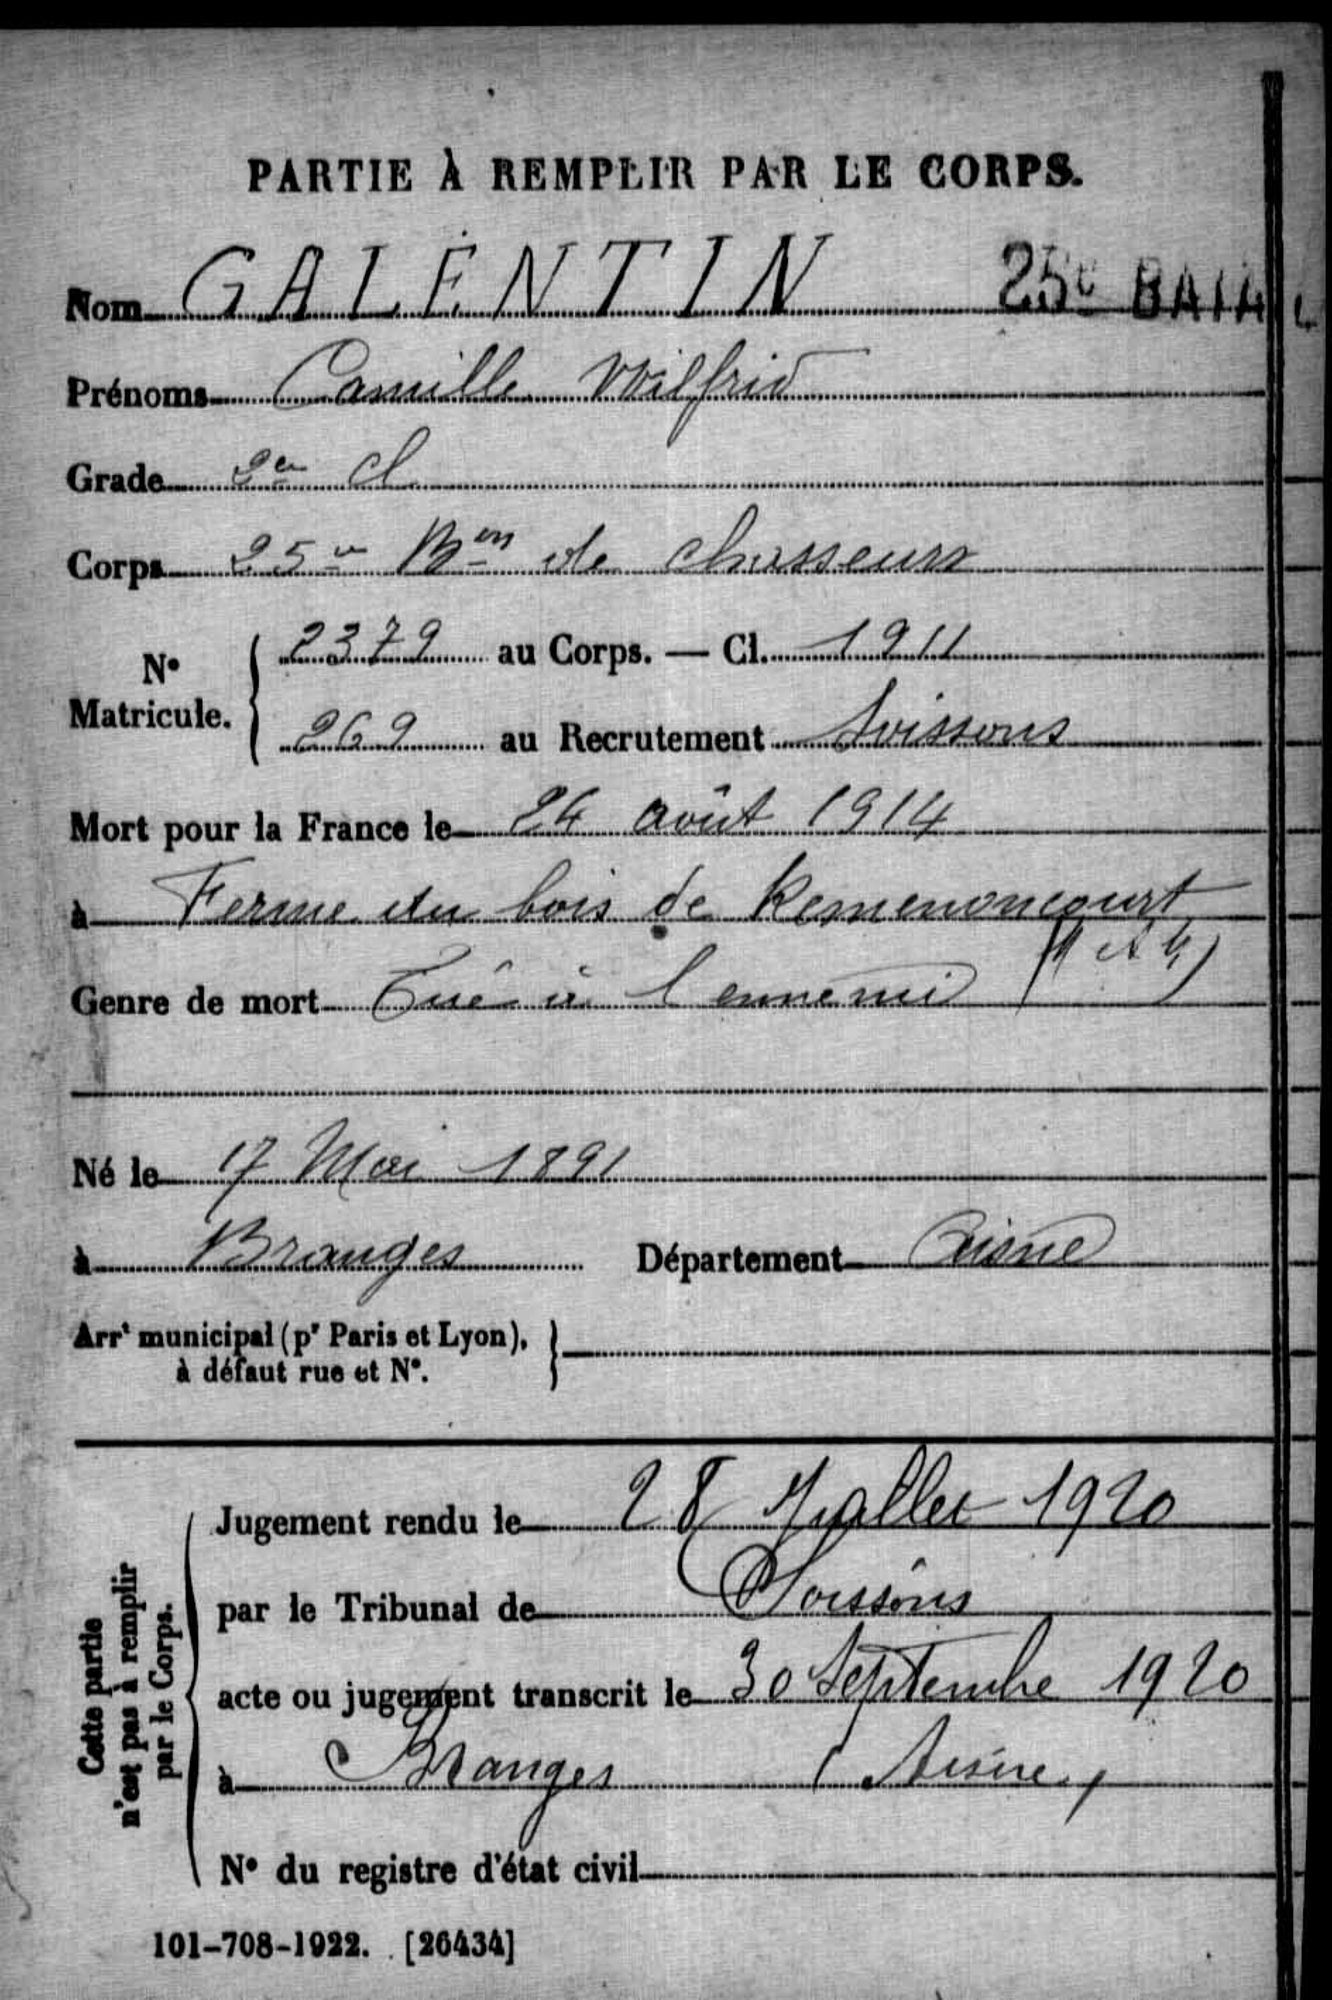 PARTIE À REMPLIR PAR LE CORPS.
Nom GALENTIN 25e BATA
Prénoms Camille Wilfrid
Grade 2e cl
Corps 25e Bon de chasseurs
No Matricule. 2379 au Corps. — Cl. 1911
269 au Recrutement Soissons
Mort pour la France le 24 août 1914
à Ferme du bois de Remenoncourt
(M et M)
Genre de mort Tué à l'ennemi
Né le 17 Mai 1891
à Branges Département Aisne
Arrt municipal (pr Paris et Lyon),
à défaut rue et No.
Cette partie
n'est pas à remplir
par le Corps.
Jugement rendu le 28 Juillet 1920
par le Tribunal de Soissons
acte ou jugement transcrit le 30 Septembre 1920
à Branges (Aisne)
No du registre d'état civil
101-708-1922. [26434]